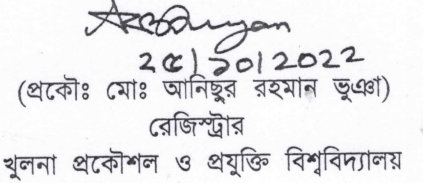 ২৫/১০/২০২২
(প্রকৌঃ মোঃ আনিছুর রহমান ভূঞা)
রেজিস্ট্রার
খুলনা প্রকৌশল ও প্রযুক্তি বিশ্ববিদ্যালয়